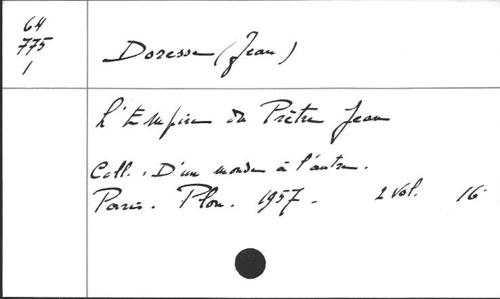 64
775
1
Doresse (Jean)
L'Empire du Prêtre Jean
Coll. : D'un monde à l'autre.
Paris. Plon. 1957. 2 vol. 16°